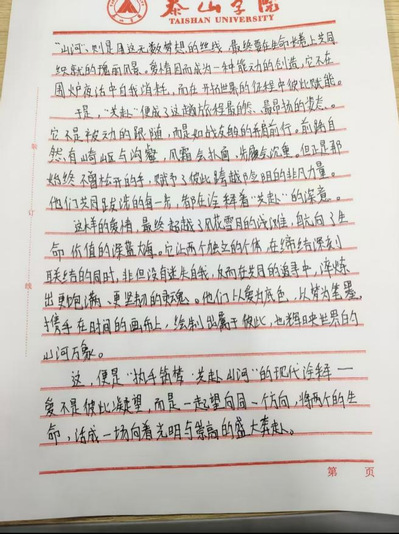 泰山学院
TAISHAN UNIVERSITY
“山河”，则是用这无数梦想的丝线，最终要在生命长卷上共同
织就的瑰丽风景。爱情因而成为一种能动的创造，它不在
围炉夜话中自我消耗，而在开拓世界的征程中彼此赋能。
于是，“共赴”便成了这趟旅程最美、最昂扬的姿态。
它不是被动的跟随，而是切我在的矛盾前行，前路自
然有崎岖与沟壑，风霜会扑面，步履会沉重。但正是那
始终不曾松开的手，赋予了彼此跨越险阻的非凡力量。
他们共同踏落的每一步，都在诠释着“共赴”的深意。
这样的爱情，最终超越了风花雪月的浅滩，航向了生
命价值的深蓝大海。它让两个独立的个体，在缔结深刻
联结的同时，非但没有迷失自我，反而在共同的追寻中，淬炼
出更饱满、更坚韧的灵魂。他们以爱为底色，以梦为笔墨，
携手在时间的画布上，绘制出属于彼此，也辉映世界的
山河万象。
这，便是“执手筑梦 共赴山河”的现代诠释——
爱不是彼此凝望，而是一起望向同一个方向，将两个的生
命，活成一场向着光明与崇高的盛大奔赴。
装
订
线
第 页